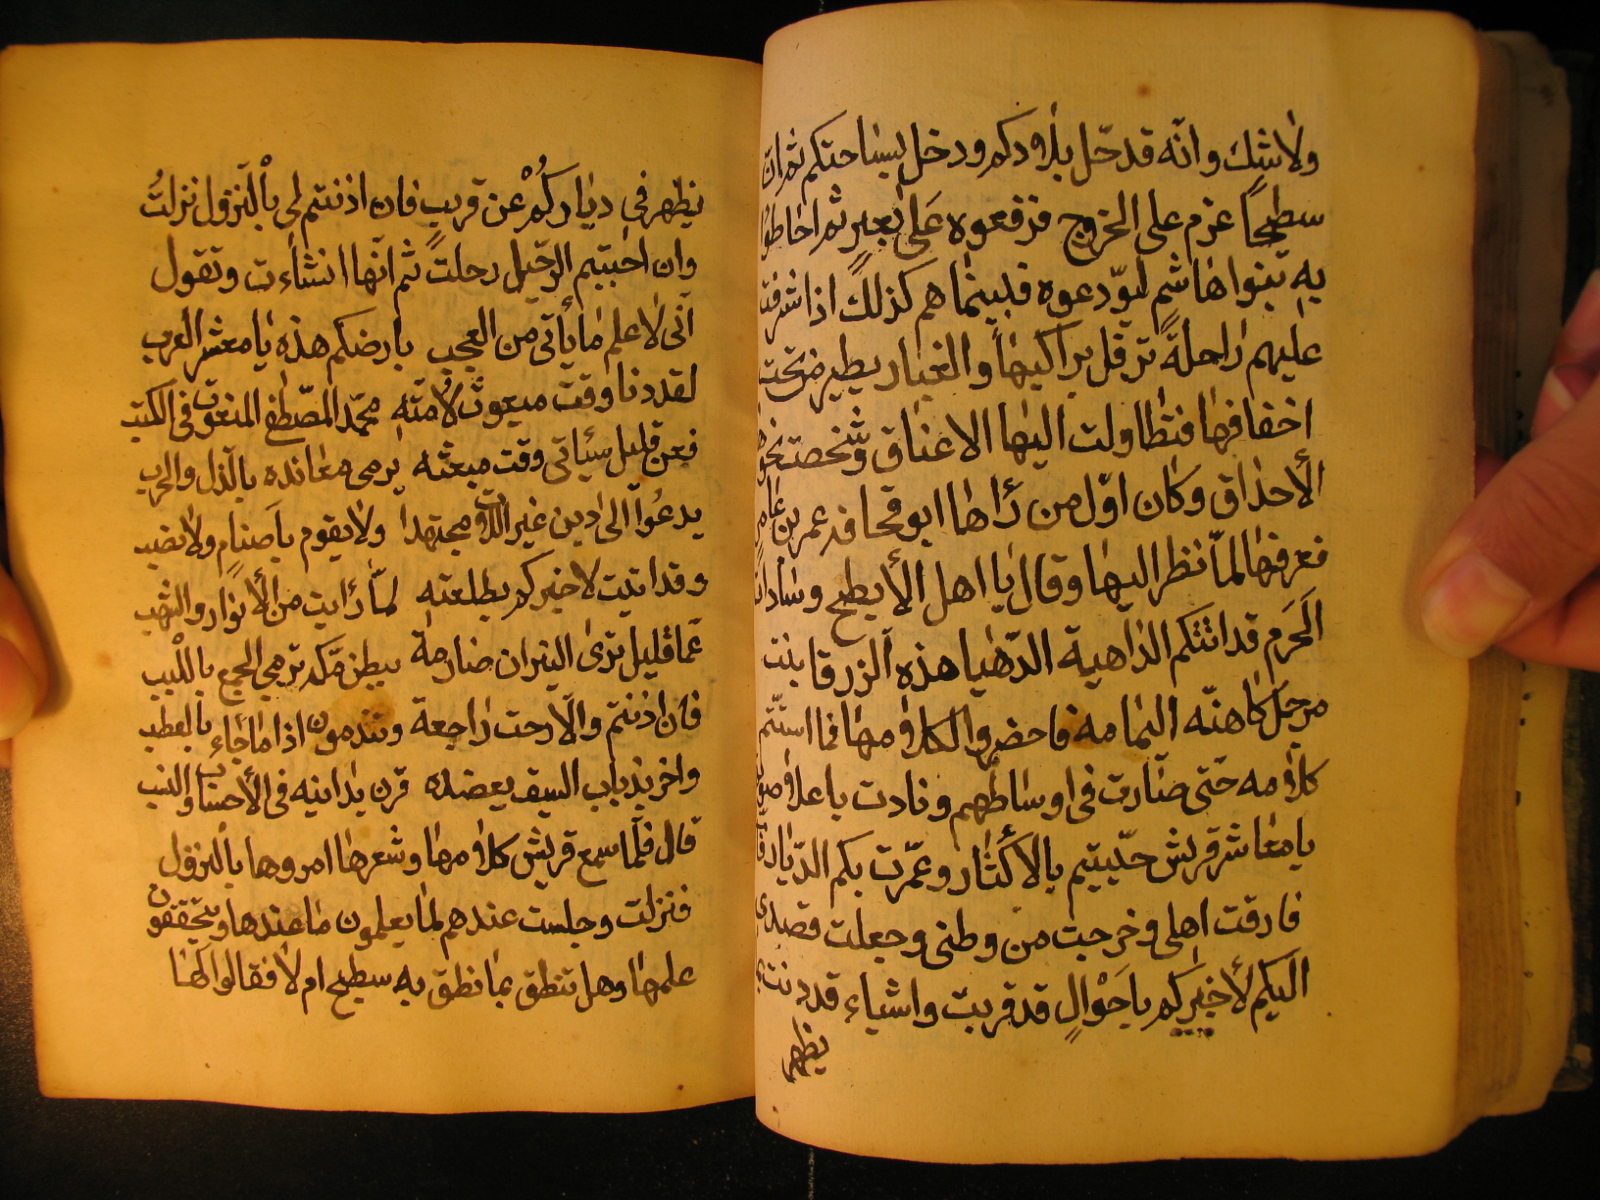 ولاشك وانه قد حل بلادكم ودخل بساحتكم ثم ان
سطيحاً عزم على الخروج فرفعوه على بعير ثم احاطوا
به بنوا هاشم ليودعوه فبينما هم كذلك اذا شرفت
عليهم راحلة ترفل براكبها والغبار يطير من تحت
اخفافها فتطاولت اليها الاعناق وشخصت نحوها
الأحداق وكان اول من رأها ابو قحافه عمر بن عامر
فعرفها لما نظر اليها وقال يا اهل الأبطح وسادات
الحرم قد اتتكم الداهية الدهيا هذه الزرقا بنت
مرحل كاهنه اليمامه فاحضروا لكلامها فما استتم
كلامه حتى صارت في اوساطهم ونادت باعلا صوتها
يا معاشر قريش حييتم بالاكثار وعمرت بكم الديار
فارقت اهلى وخرجت من وطنى وجعلت قصدى
اليكم لأخبركم باحوال قد قربت واشياء قد دنت
يظهر
يظهر في دياركم عن قريب فان اذنتم لى بالنزول نزلت
وان احببتم الرحيل رحلت ثم انها انشاءت وتقول
انى لا علم ما يأتى من العجب بارضكم هذه يا معشر العرب
لقد دنا وقت مبعوث لأمته محمد المصطفى المنعوت في الكتب
فعن قليل سيأتى وقت مبعثه يرمى معانده بالذل والحرب
يدعوا الى دين غير اللات مجتهدا ولا يقوم باصنام ولا نصب
وقد اتيت لاخبركم بطلعته لما رأيت من الأنوار والشهب
عما قليل ترى النيران ضارمة ببطن مكه ترمى الجمع باللهب
فان اذنتم والا رحت راجعة وتندمون اذا ما جاء بالعطب
واخر بذباب السيف يعضده قرن يدانيه في الأحساب والنسب
قال فلما سمع قريش كلامها وشعرها امروها بالنزول
فنزلت وجلست عندهم لما يعلمون ما عندها ويتحققون
علمها وهل تنطق بما نطق به سطيح ام لا فقالوا لها